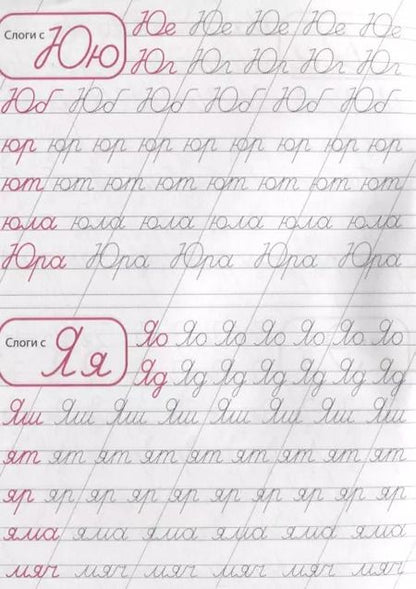 Слоги с Юю
Юе Юе Юе Юе Юе
Юг Юг Юг Юг Юг
Юб Юб Юб Юб Юб Юб
юр юр юр юр юр юр юр юр юр
ют ют ют ют ют ют ют ют
юла юла юла юла юла юла
Юра Юра Юра Юра Юра
Слоги с Яя
Яо Яо Яо Яо Яо Яо Яо
Яд Яд Яд Яд Яд Яд Яд
Яш Яш Яш Яш Яш Яш Яш Яш
ят ят ят ят ят ят ят ят ят
яр яр яр яр яр яр яр яр яр яр
яма яма яма яма яма яма
мяч мяч мяч мяч мяч мяч